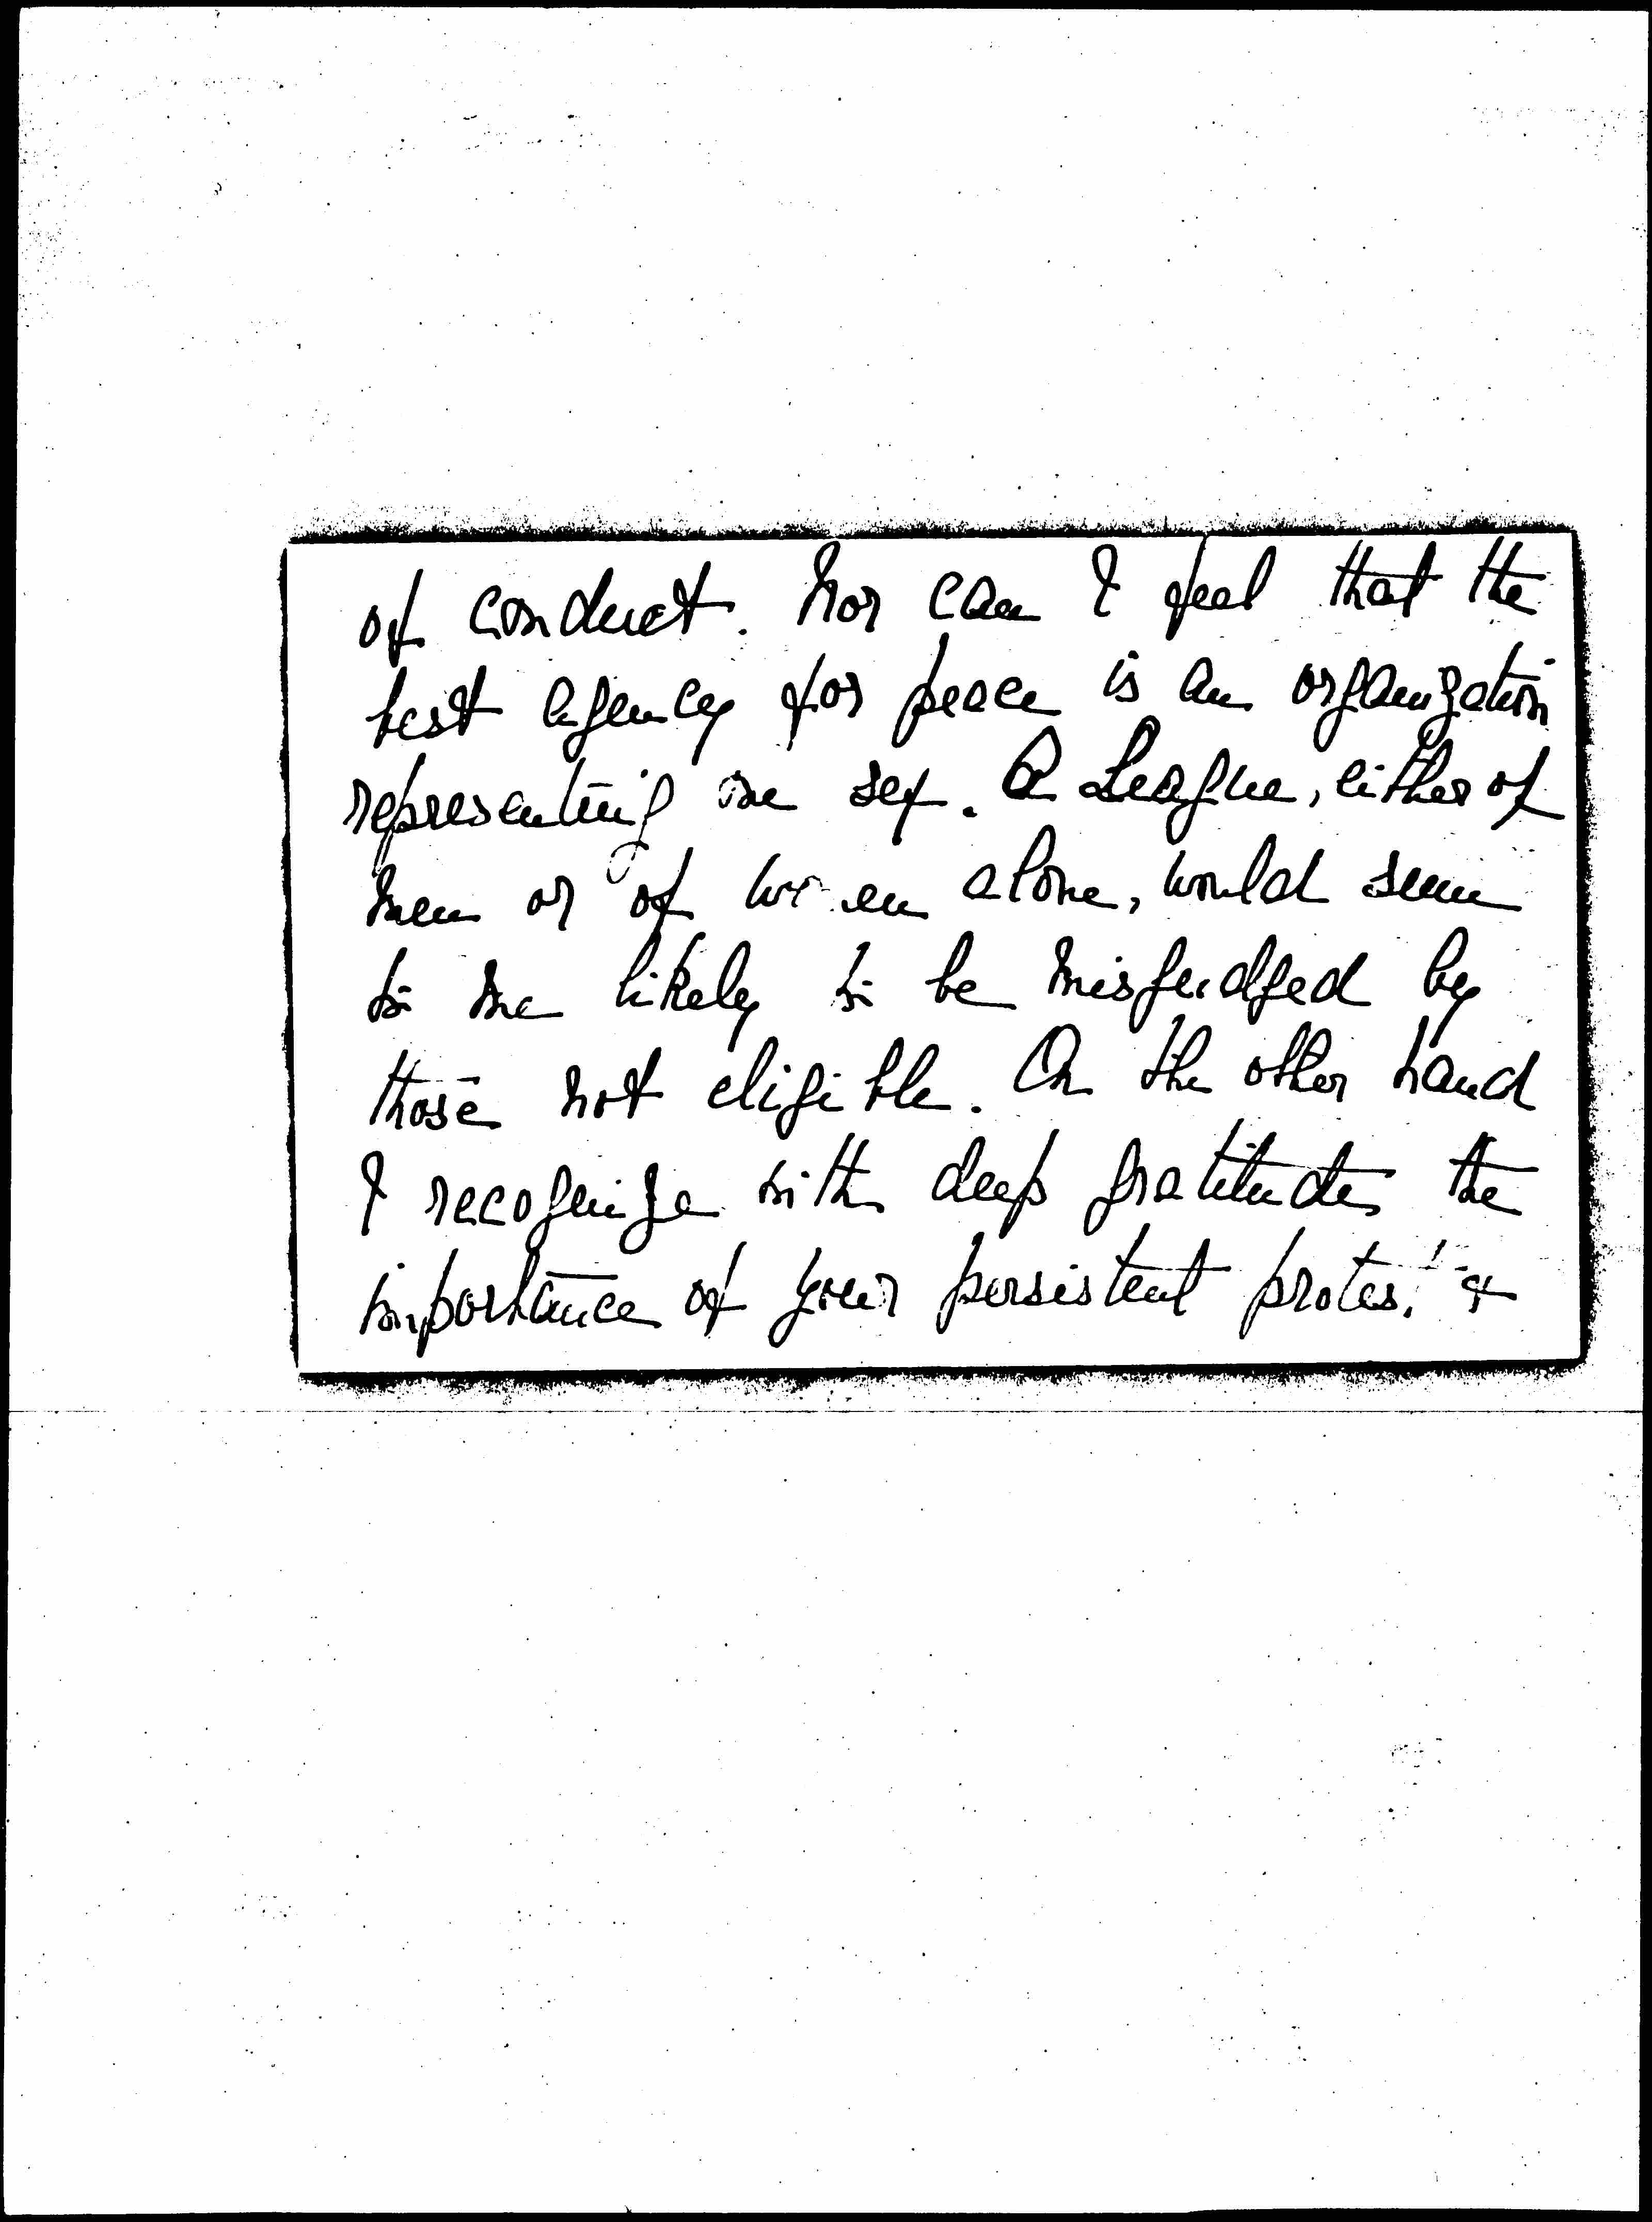 of conduct. Nor can I feel that the
best agency for peace is an organization
representing one sex. A League, either of
men or of women alone, would seem
to me likely to be misjudged by
those not eligible. On the other hand
I recognize with deep gratitude, the
importance of your persistent protest &